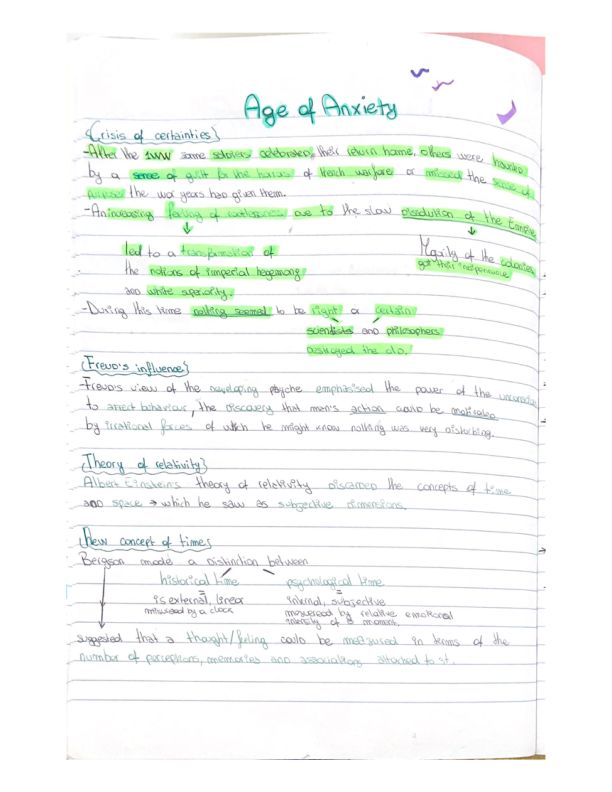 Age of Anxiety
{Crisis of certainties}
-After the 1WW some soldiers celebrated their return home, others were haunted
by a sense of guilt for the horrors of trench warfare or missed the sense of
purpose the war years had given them.
-An increasing feeling of rootlessness due to the slow dissolution of the Empire
led to a transformation of
the notions of imperial hegemony
and white superiority.
Majority of the colonies
got their independence
-During this time nothing seemed to be right or certain
scientists and philosophers
destroyed the old.
{Freud's influence}
-Freud's view of the developing psyche emphasised the power of the unconscious
to affect behaviour, the discovery that men's action could be motivated
by irrational forces of which he might know nothing was very disturbing.
{Theory of relativity}
Albert Einstein's theory of relativity discarded the concepts of time
and space → which he saw as subjective dimensions.
{New concept of time}
Bergson made a distinction between
historical time psychological time
is external, linear internal, subjective
measured by a clock measured by relative emotional
intensity of a moment.
suggested that a thought/feeling could be measured in terms of the
number of perceptions, memories and associations attached to st.